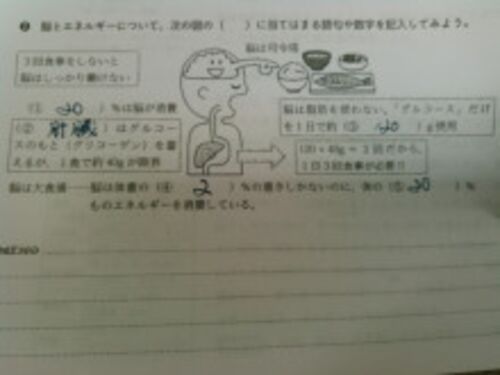 ❷ 脳とエネルギーについて、次の図の（　）に当てはまる語句や数字を記入してみよう。
脳は司令塔
3回食事をしないと
脳はしっかり働けない
（① 20 ）％は脳が消費
（② 肝臓 ）はグルコー
スのもと（グリコーゲン）を蓄
えるが、1食で約40gが限界
脳は脂肪を使わない。「グルコース」だけ
を1日で約（③ 120 ）g使用
120÷40g＝3回だから、
1日3回食事が必要!!
脳は大食漢……脳は体重の（④ 2 ）％の重さしかないのに、体の（⑤ 20 ）％
ものエネルギーを消費している。
MEMO